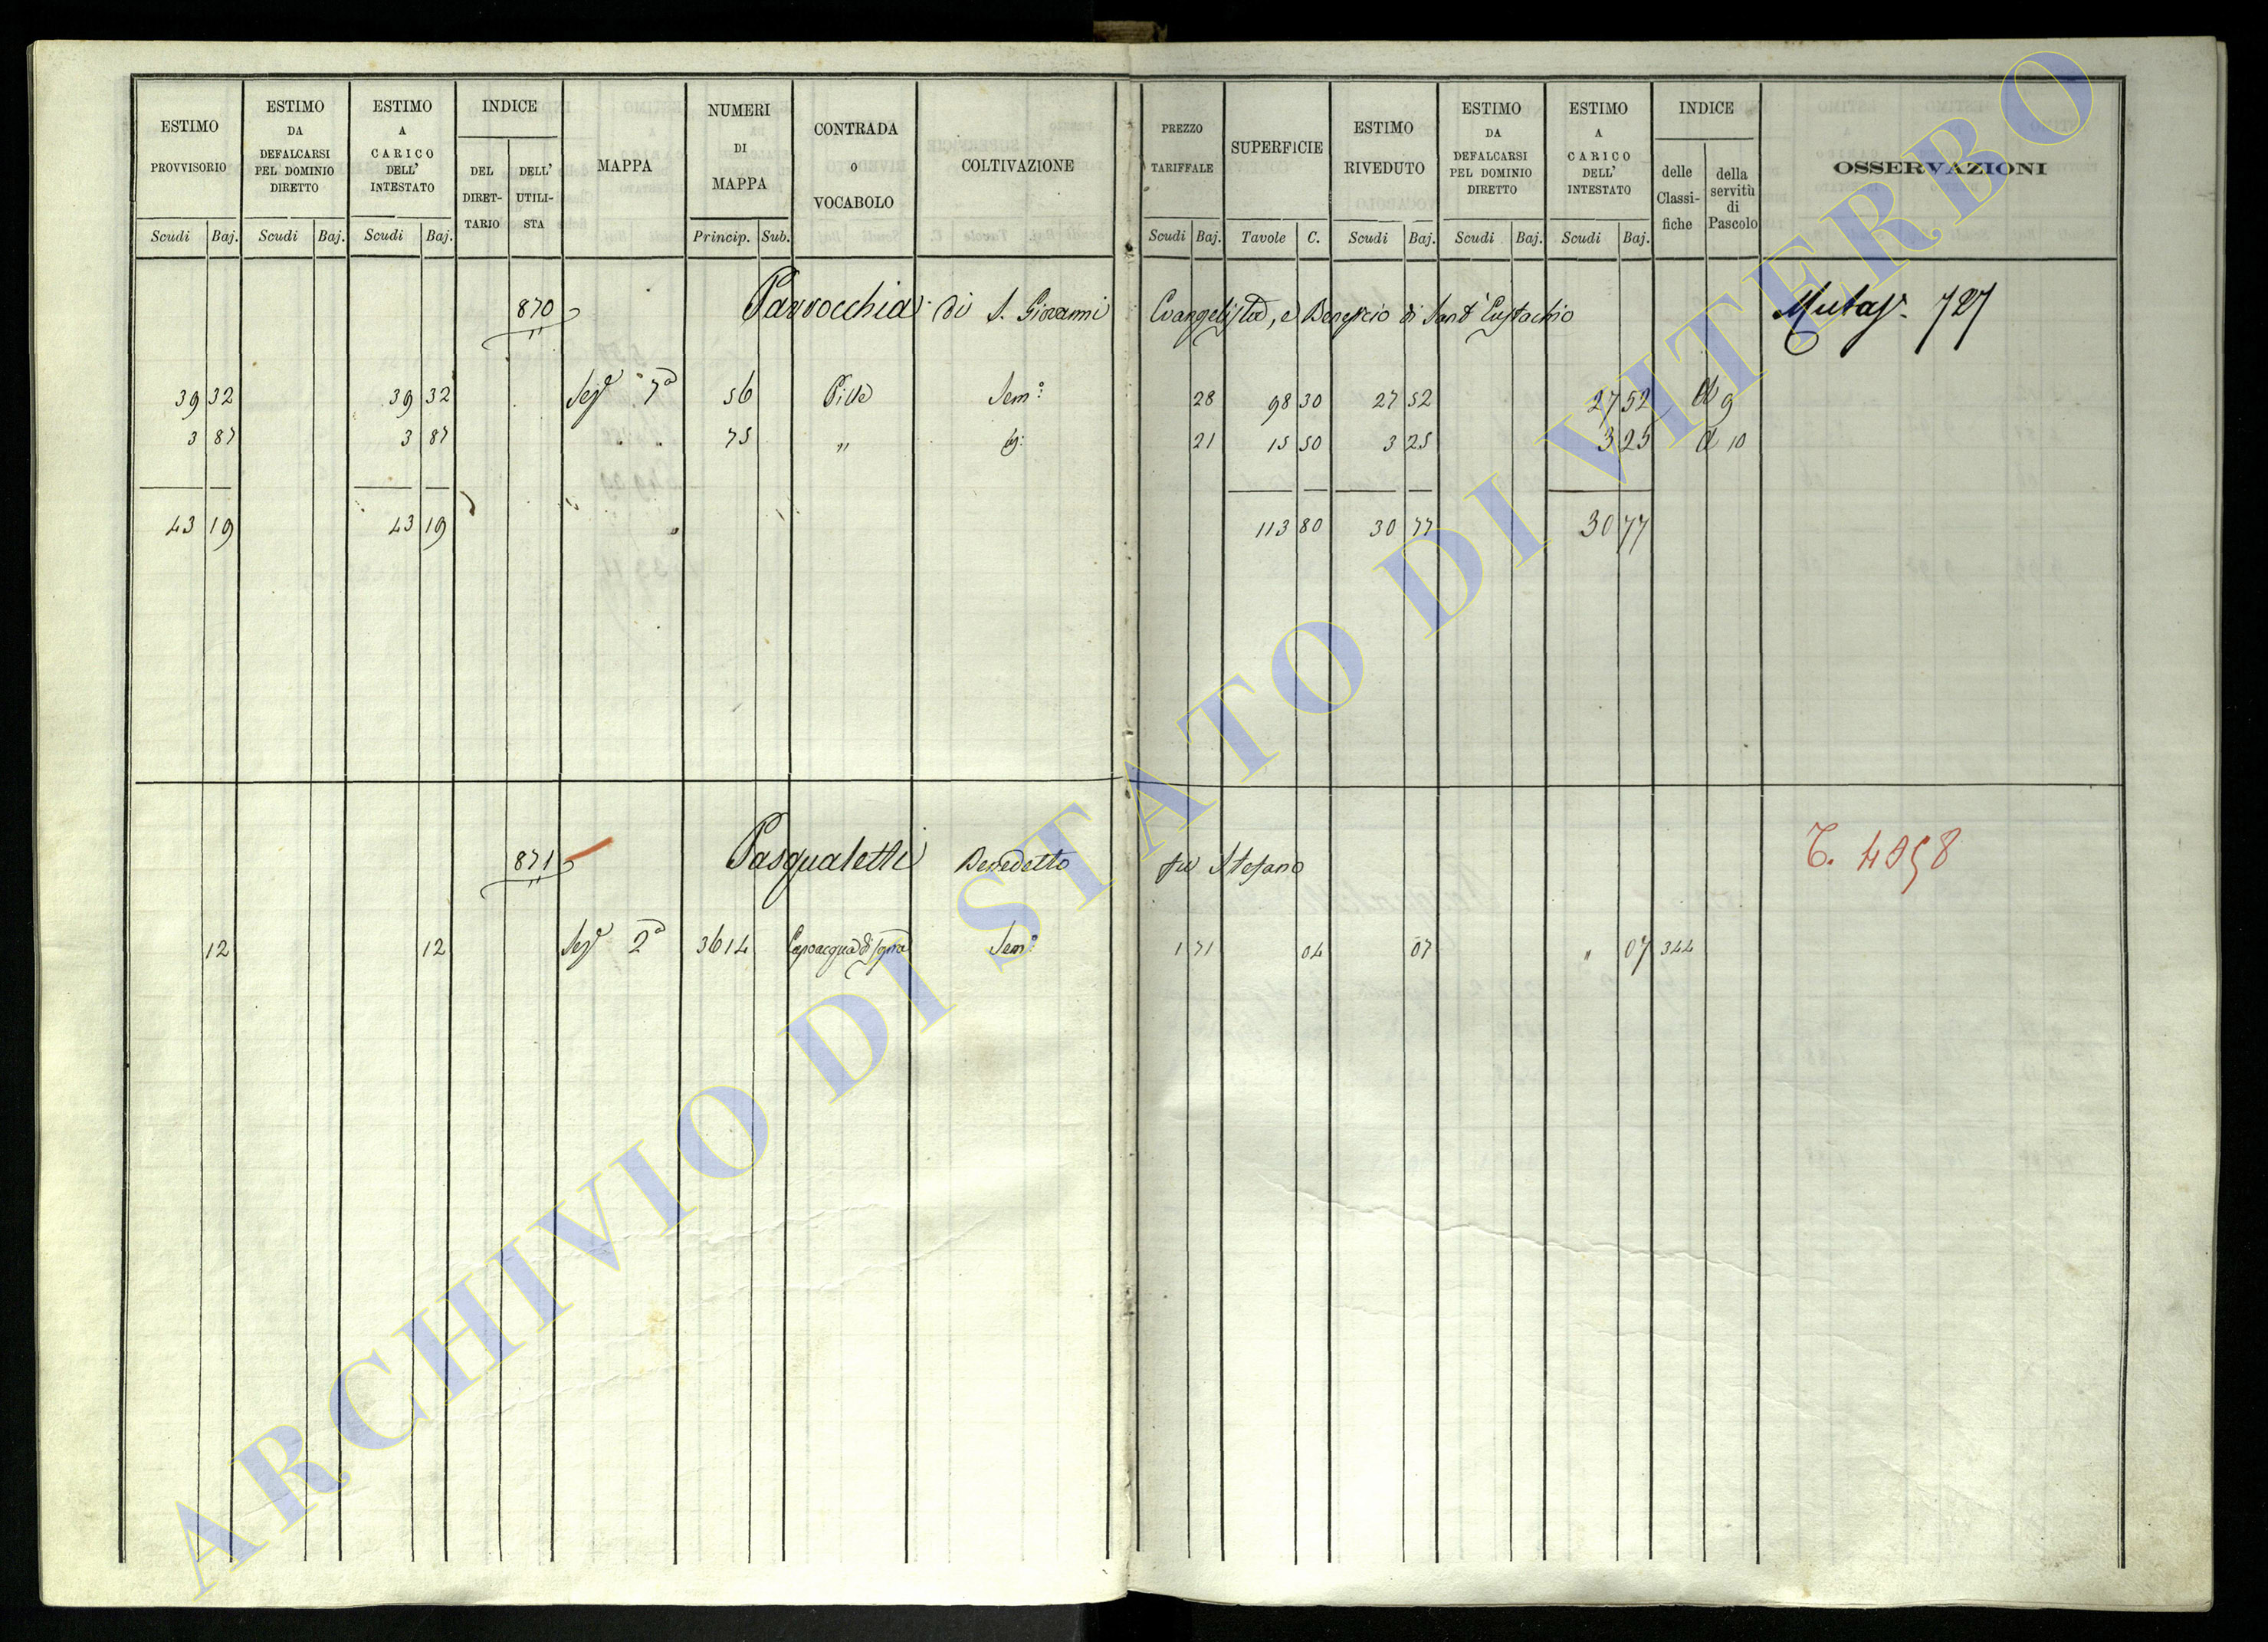 ESTIMO PROVVISORIO Scudi Baj.
ESTIMO DA DEFALCARSI PEL DOMINIO DIRETTO Scudi Baj.
ESTIMO A CARICO DELL' INTESTATO Scudi Baj.
INDICE DEL DIRETTARIO DELL' UTILISTA
MAPPA
NUMERI DI MAPPA Princip. Sub.
CONTRADA o VOCABOLO
COLTIVAZIONE
PREZZO TARIFFALE Scudi Baj.
SUPERFICIE Tavole C.
ESTIMO RIVEDUTO Scudi Baj.
ESTIMO DA DEFALCARSI PEL DOMINIO DIRETTO Scudi Baj.
ESTIMO A CARICO DELL' INTESTATO Scudi Baj.
INDICE delle Classifiche della servitù di Pascolo
OSSERVAZIONI
870 Parrocchia di S. Giovanni Evangelista, e Beneficio di Sant'Eustachio 727
39 32 39 32 7a 56 Sem: 28 98 30 27 52 27 52 9
3 87 3 87 " " 75 " 21 15 50 3 25 3 25 10
43 19 43 19 113 80 30 77 30 77
871 Pasqualetti Benedetto fu Stefano
12 12 2a 3614 Sem: 1 71 04 07 " 07 344
ARCHIVIO DI STATO DI VITERBO